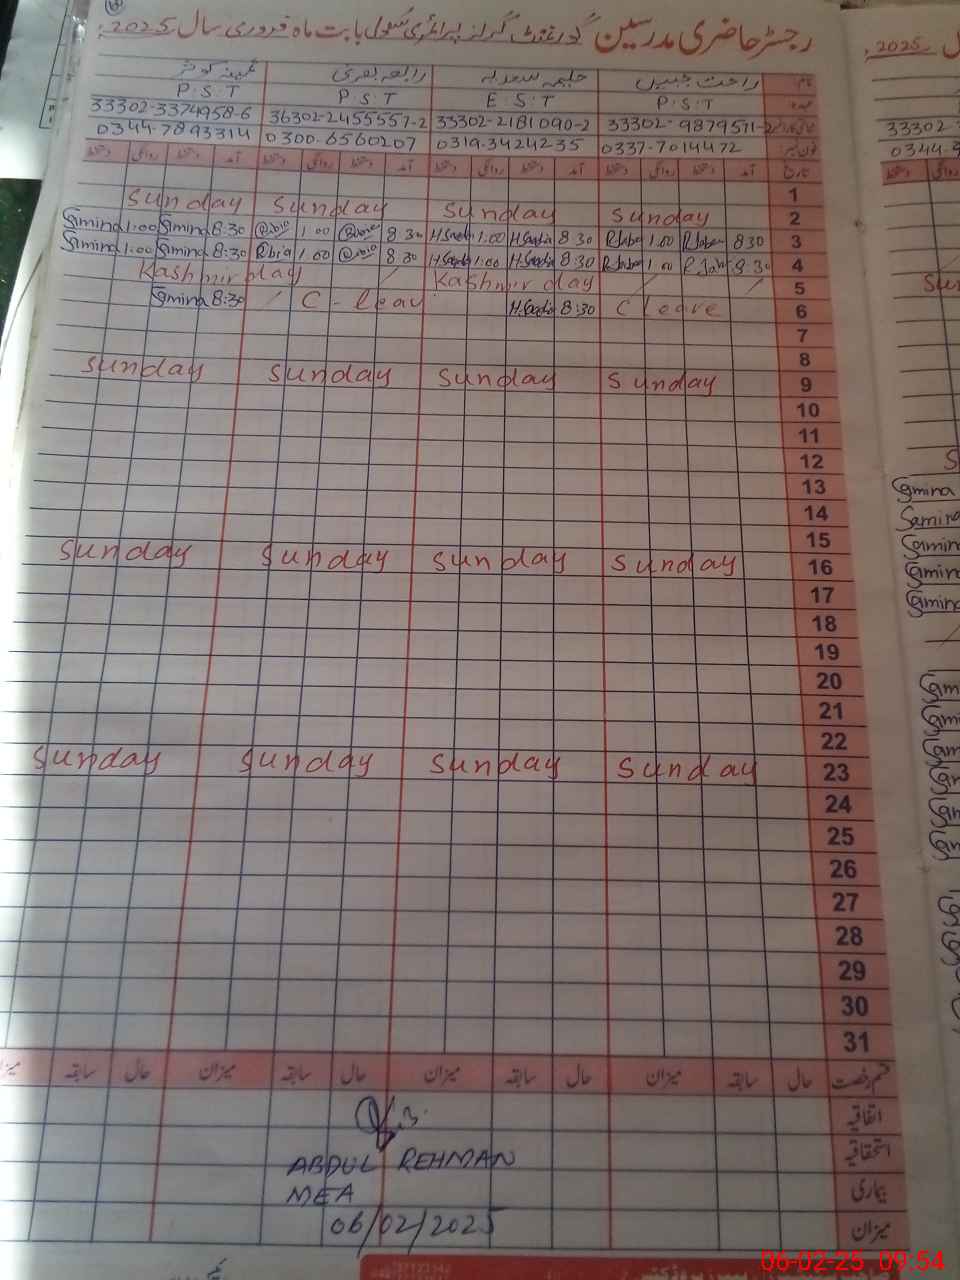 رجسٹر حاضری مدرسین گورنمنٹ گرلز پرائمری سکول بابت ماہ فروری سال 2025
2025
نام راحت جبیں حلیمہ سعدیہ رابعہ بصری ثمینہ کوثر
عہدہ P.S.T E.S.T P.S.T P.S.T
33302-9879571-2 33302-2181090-2 36302-2455557-2 33302-3374958-6
فون نمبر 0337-7014472 0319-3424235 0300-6560207 0344-7893314
تاریخ آمد دستخط روانگی دستخط آمد دستخط روانگی دستخط آمد دستخط روانگی دستخط آمد دستخط روانگی دستخط
1
Sunday Sunday Sunday Sunday 2
Samina 1:00 Samina 8:30 Rabia 1:00 Rabia 8:30 H.Sadia 1:00 H.Sadia 8:30 R.Jabe 1:00 R.Jabe 8:30 3
Samina 1:00 Samina 8:30 Rbia 1:00 Rabia 8:30 H.Sadia 1:00 H.Sadia 8:30 R.Jabe 1:00 R.Jab 8:30 4
Kashmir day Kashmir day 5
Samina 8:30 C-leav H.Sadia 8:30 C leave 6
7
8
Sunday Sunday Sunday Sunday 9
10
11
12
13
14
15
Sunday Sunday Sunday Sunday 16
17
18
19
20
21
22
Sunday Sunday Sunday Sunday 23
24
25
26
27
28
29
30
31
قسم رخصت حال سابقہ میزان حال سابقہ میزان حال سابقہ میزان حال سابقہ میزان
اتفاقیہ
استحقاقیہ
بیماری
میزان
ABDUL REHMAN
MEA
06/02/2025
33302
0344
Samina
Samina
Samina
Samina
Samina
06-02-25 09:54